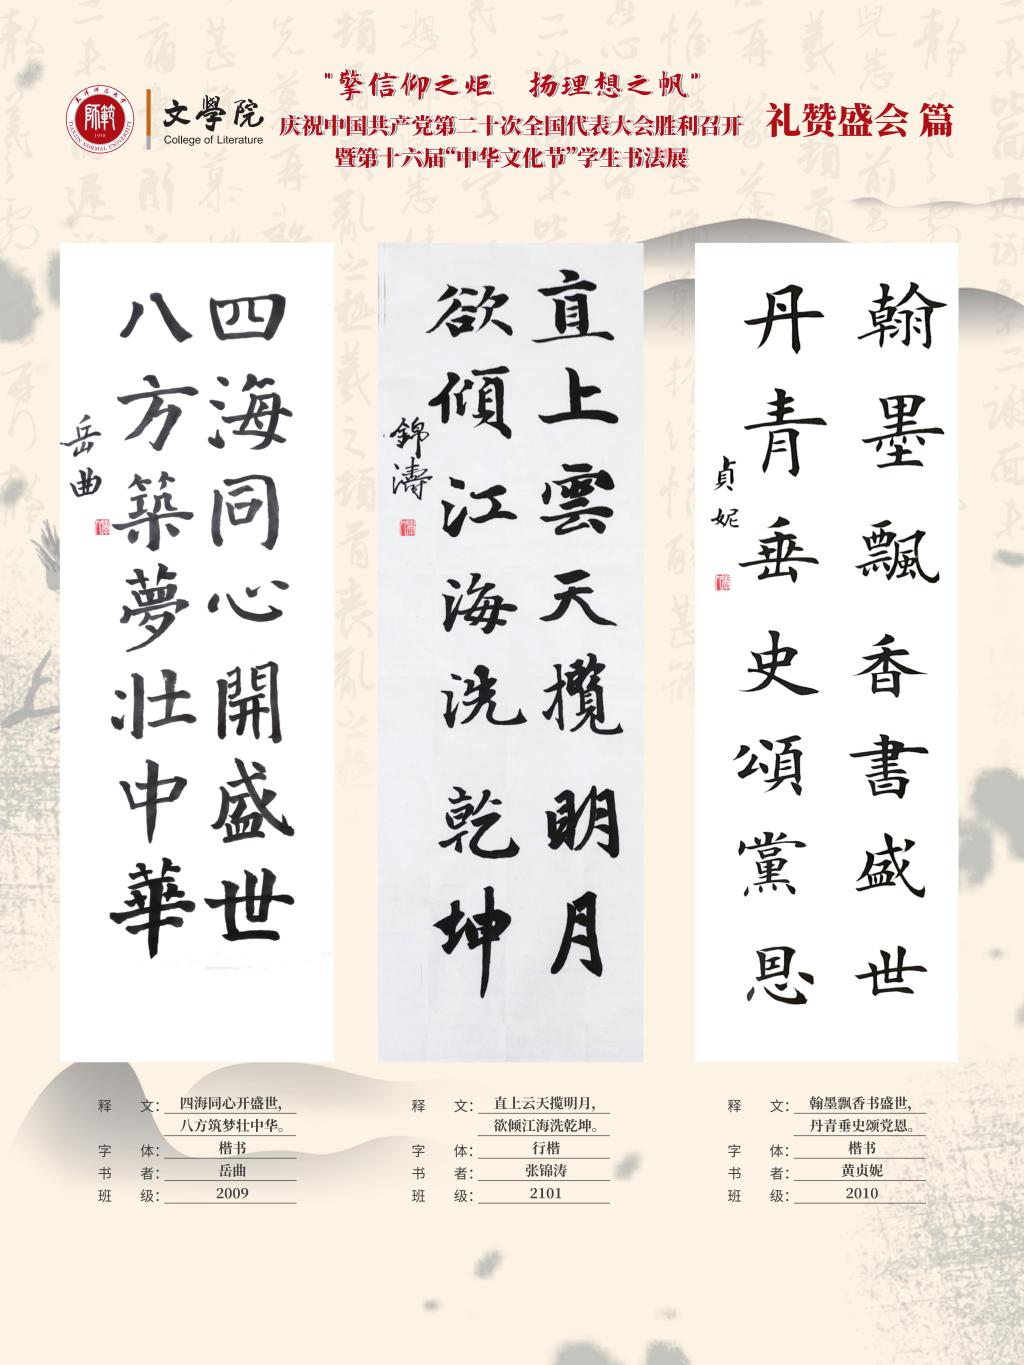 "擎信仰之炬 扬理想之帆"
庆祝中国共产党第二十次全国代表大会胜利召开
暨第十六届“中华文化节”学生书法展
礼赞盛会 篇
师範
1958
TIANJIN NORMAL UNIVERSITY
文學院
College of Literature
四海同心開盛世
八方築夢壯中華
岳曲
直上雲天攬明月
欲傾江海洗乾坤
錦濤
翰墨飄香書盛世
丹青垂史頌黨恩
貞妮
释 文：四海同心开盛世，
八方筑梦壮中华。
字 体：楷书
书 者：岳曲
班 级：2009
释 文：直上云天揽明月，
欲倾江海洗乾坤。
字 体：行楷
书 者：张锦涛
班 级：2101
释 文：翰墨飘香书盛世，
丹青垂史颂党恩。
字 体：楷书
书 者：黄贞妮
班 级：2010